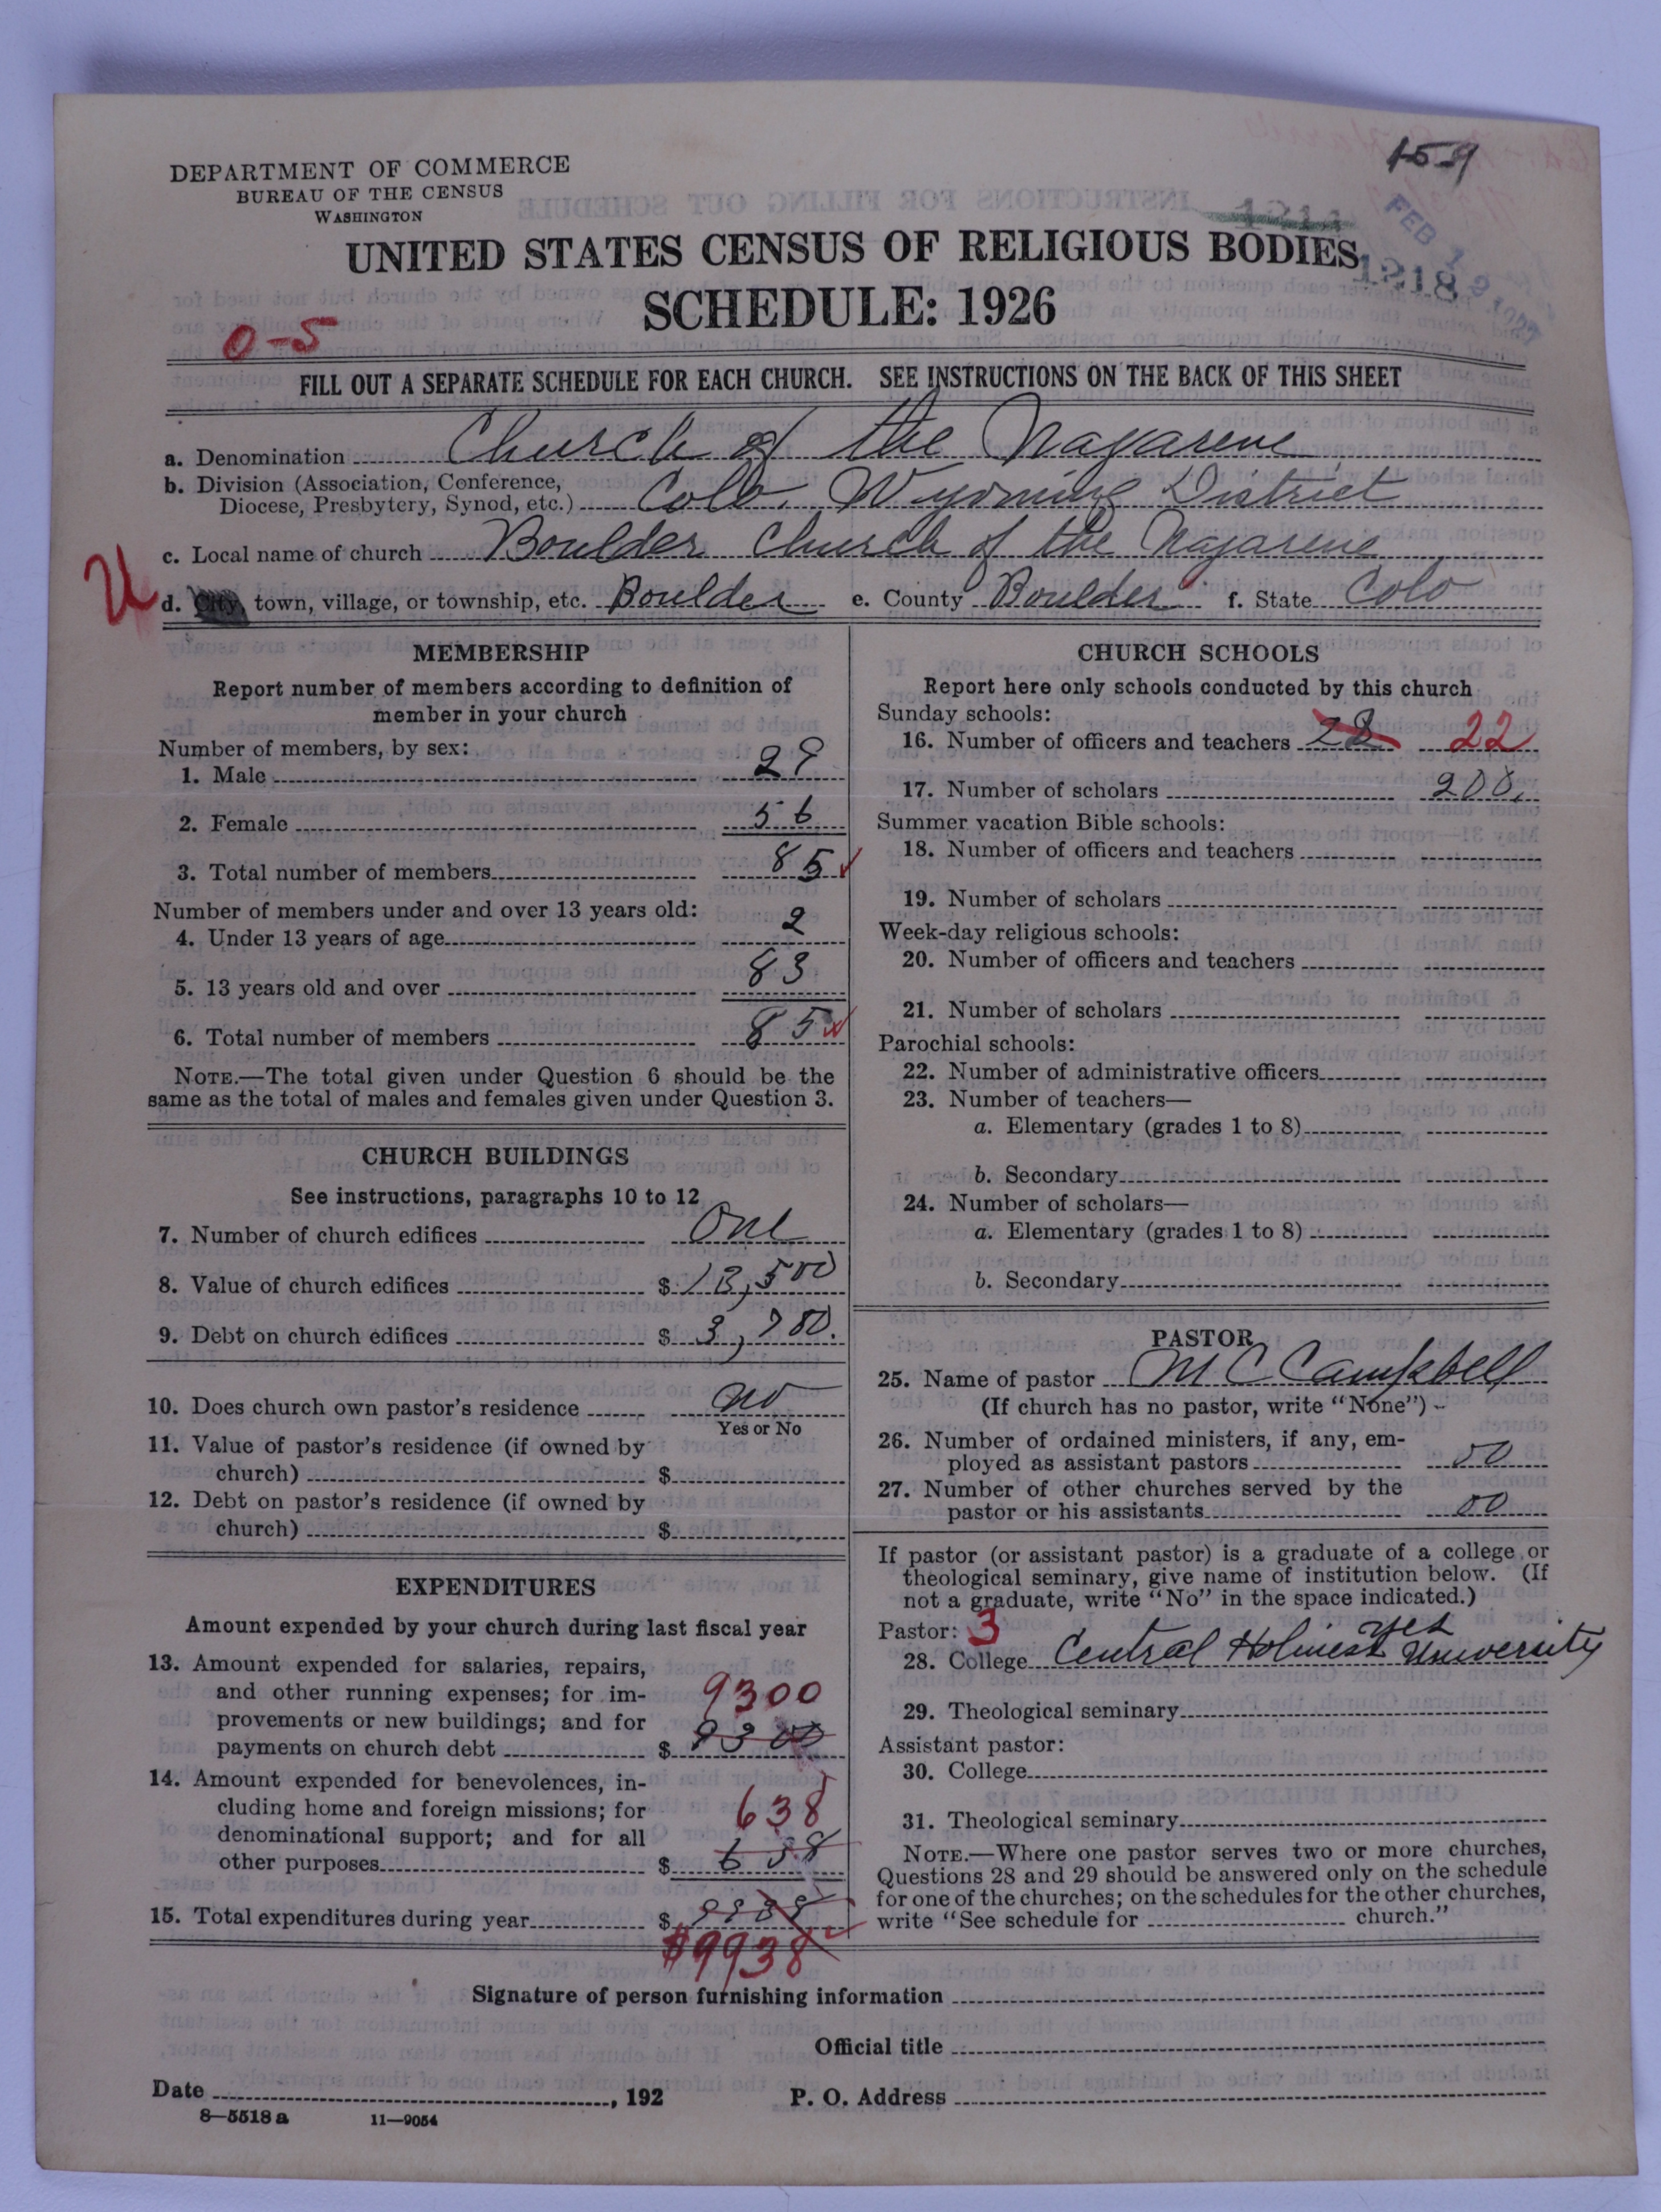 159
DEPARTMENT OF COMMERCE
BUREAU OF THE CENSUS
WASHINGTON
1214
FEB 19 1927
UNITED STATES CENSUS OF RELIGIOUS BODIES
1218
SCHEDULE: 1926
0-5
FILL OUT A SEPARATE SCHEDULE FOR EACH CHURCH. SEE INSTRUCTIONS ON THE BACK OF THIS SHEET
a. Denomination Church of the Nazarene
b. Division (Association, Conference,
Diocese, Presbytery, Synod, etc.) Colo. Wyoming District
c. Local name of church Boulder Church of the Nazarene
U
d. City, town, village, or township, etc. Boulder e. County Boulder f. State Colo
MEMBERSHIP
Report number of members according to definition of
member in your church
Number of members, by sex:
1. Male 29
2. Female 56
3. Total number of members 85
Number of members under and over 13 years old:
4. Under 13 years of age 2
5. 13 years old and over 83
6. Total number of members 85
NOTE.—The total given under Question 6 should be the
same as the total of males and females given under Question 3.
CHURCH BUILDINGS
See instructions, paragraphs 10 to 12
7. Number of church edifices One
8. Value of church edifices $ 13,500
9. Debt on church edifices $ 3,780.
10. Does church own pastor's residence no
Yes or No
11. Value of pastor's residence (if owned by
church) $
12. Debt on pastor's residence (if owned by
church) $
EXPENDITURES
Amount expended by your church during last fiscal year
13. Amount expended for salaries, repairs,
and other running expenses; for im- 9300
provements or new buildings; and for
payments on church debt $ 9300
14. Amount expended for benevolences, in-
cluding home and foreign missions; for 638
denominational support; and for all
other purposes $ 638
15. Total expenditures during year $ 9938
$9938
CHURCH SCHOOLS
Report here only schools conducted by this church
Sunday schools:
16. Number of officers and teachers 22 22
17. Number of scholars 200.
Summer vacation Bible schools:
18. Number of officers and teachers
19. Number of scholars
Week-day religious schools:
20. Number of officers and teachers
21. Number of scholars
Parochial schools:
22. Number of administrative officers
23. Number of teachers—
a. Elementary (grades 1 to 8)
b. Secondary
24. Number of scholars—
a. Elementary (grades 1 to 8)
b. Secondary
PASTOR
25. Name of pastor M C Campbell
(If church has no pastor, write "None")
26. Number of ordained ministers, if any, em-
ployed as assistant pastors 00
27. Number of other churches served by the
pastor or his assistants 00
If pastor (or assistant pastor) is a graduate of a college or
theological seminary, give name of institution below. (If
not a graduate, write "No" in the space indicated.)
Pastor: 3 yes
28. College Central Holiness University
29. Theological seminary
Assistant pastor:
30. College
31. Theological seminary
NOTE.—Where one pastor serves two or more churches,
Questions 28 and 29 should be answered only on the schedule
for one of the churches; on the schedules for the other churches,
write "See schedule for church."
Signature of person furnishing information
Official title
Date , 192 P. O. Address
8—5518 a 11—9054